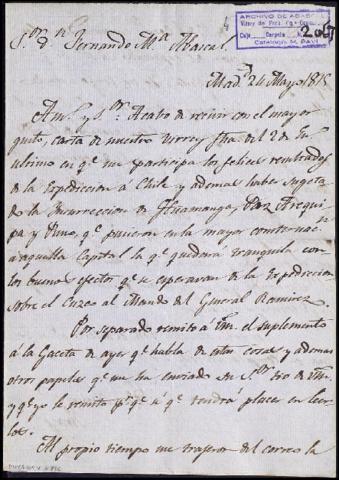 ARCHIVO DE ABASCAL
S.or D.n Fernando M.a Abascal.
Mad.d 24 Mayo 1815
Am.o y S.or: Acabo de recivir con el mayor
gusto, carta de nuestro Virrey fha. del 2 de
ultimo en q.e me participa los felices resultados
de la Expedicion á Chile y ademas haber
de la Insurreccion de Huamanga, Paz Arequi
pa y Puno, q.e pusieron en la mayor consternac.n
aquella Capital la q.e quedará tranquila con
los buenos efectos q.e se esperavan de la Expedicion
sobre el Cuzco al Mando del General Ramirez.
Por separado remito á Vm. el suplemento
á la Gaceta de ayer q.e habla de estas cosas y ademas
otros papeles q.e me ha enviado su S.or tio de Vm.
y q.e yo le remito p.r q.e sé q.e tendra placer en leer
los.
Al propio tiempo me trageron del correo la